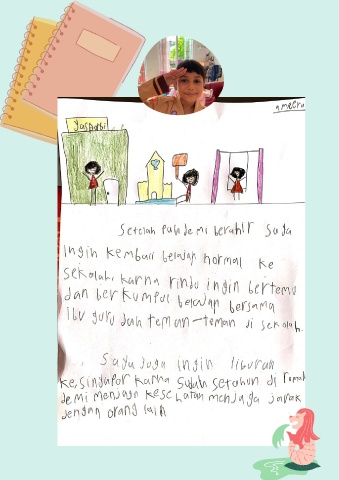 Ameera
Yasporbi
Setelah pandemi berahir saya
ingin kembali belajar normal ke
sekolah. karna rindu ingin bertemu
dan berkumpul belajar bersama
ibu guru dan teman-teman di sekolah.
Saya juga ingin liburan
ke singapor karna sudah setahun di rumah
demi menjaga kesehatan menjaga jarak
dengan orang lain